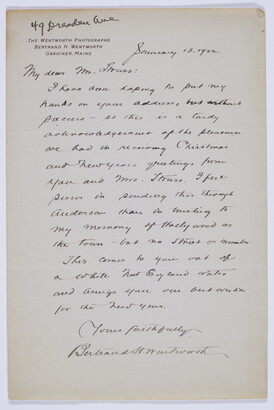 49 Dresden Ave
THE WENTWORTH PHOTOGRAPHS
BERTRAND H. WENTWORTH
GARDINER, MAINE
January 13, 1922
My dear Mr. Struss:
I have been hoping to put my
hands on your address, but without
success – so this is a tardy
acknowledgement of the pleasure
we had in receiving Christmas
and New Years greetings from
you and Mrs. Struss. I feel
surer in sending this through
Anderson than in trusting to
my memory of Hollywood as
the town – but no street or number
This comes to you out of
a white New England winter
and brings you our best wishes
for the New Year.
Yours faithfully,
Bertrand H Wentworth